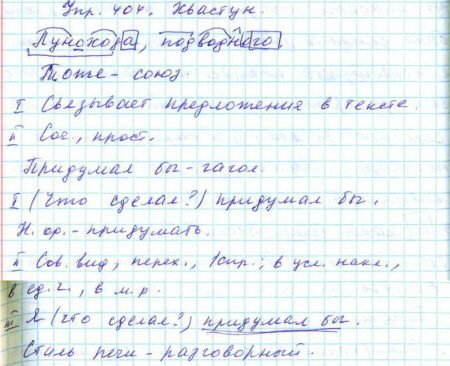 Упр. 404. Хвастун.
Лунохода, подводного.
Тоже - союз.
I Связывает предложения в тексте.
II Соч., прост.
Придумал бы - глагол.
I (Что сделал?) придумал бы.
Н. ф. - придумать.
II Сов. вид, перех., I спр.; в усл. накл.,
в ед. ч., в м. р.
III Я (что сделал?) придумал бы.
Стиль речи - разговорный.